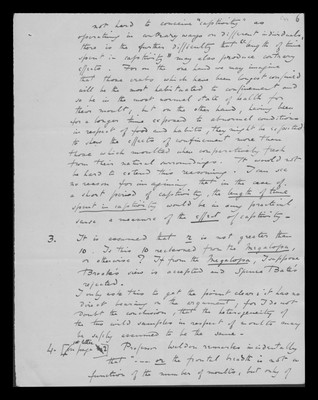 6
not hard to conceive "captivity" as
operating in contrary ways on different individuals,
there is the further difficulty that "length of time
spent in captivity" may also produce contrary
effects. For on the one hand we may imagine
that those crabs which have been longest confined
will be the most habituated to confinement and
so be in the most normal state of health for
their moults; but on the other hand, having been
for a longer time exposed to abnormal conditions
in respect of food and habits, they might be expected
to shew the effects of confinement more than
those which moulted when comparatively fresh
from their natural surroundings. It would not
be hard to extend this reasoning. I can see
no reason for imagining that in the case of
a short period of captivity, the length of time
spent in captivity would be in any practical
sense a measure of the effect of captivity.
3. It is assumed that r is not greater than
10. Is this 10 reckoned from the Megalopa,
or otherwise? If from the Megalopa, I suppose
Brook's view is accepted and Spence Bate's
rejected.
I only ask this to get the point clear; it has no
direct bearing on the argument, for I do not
doubt the conclusion, that the heterogeneity of
the two wild samples in respect of moults may
be safely assumed to be the same.
4. Professor Weldon remarks incidentally
that "--- or the frontal breadth is not a
function of the number of moults, but only of